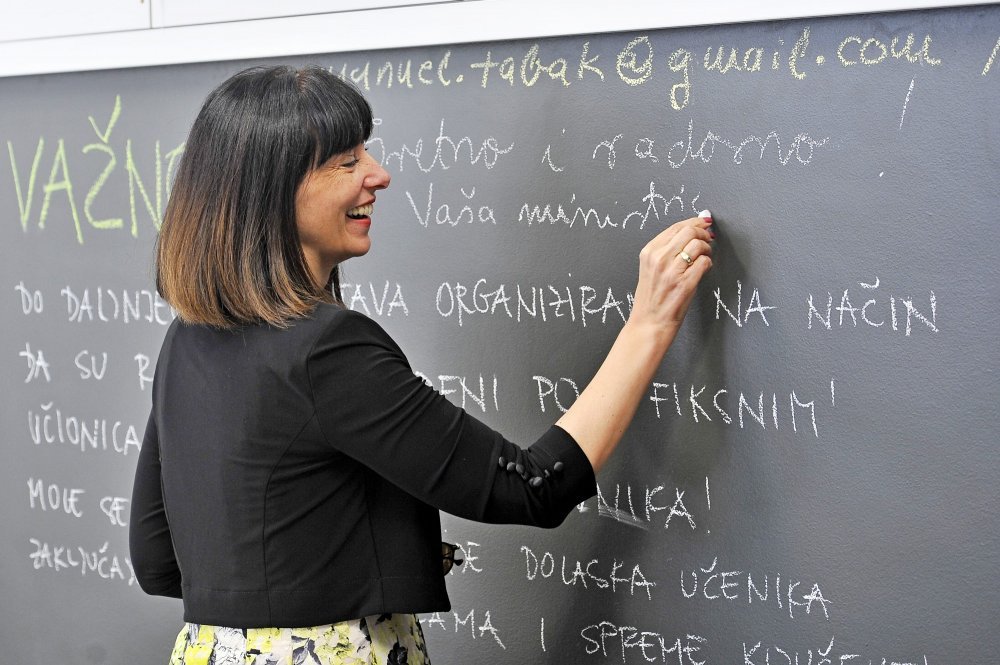 manuel.tabak@gmail.com
VAŽNO
Sretno i radosno
Vaša ministric
DO DALJNJE TAVA ORGANIZIRAN NA NAČIN
DA SU R ĐENI PO FIKSNIM
UČIONICA
MOLE SE NIKA!
ZAKLJUČA DOLASKA UČENIKA
AMA I SPREME KLJUČE